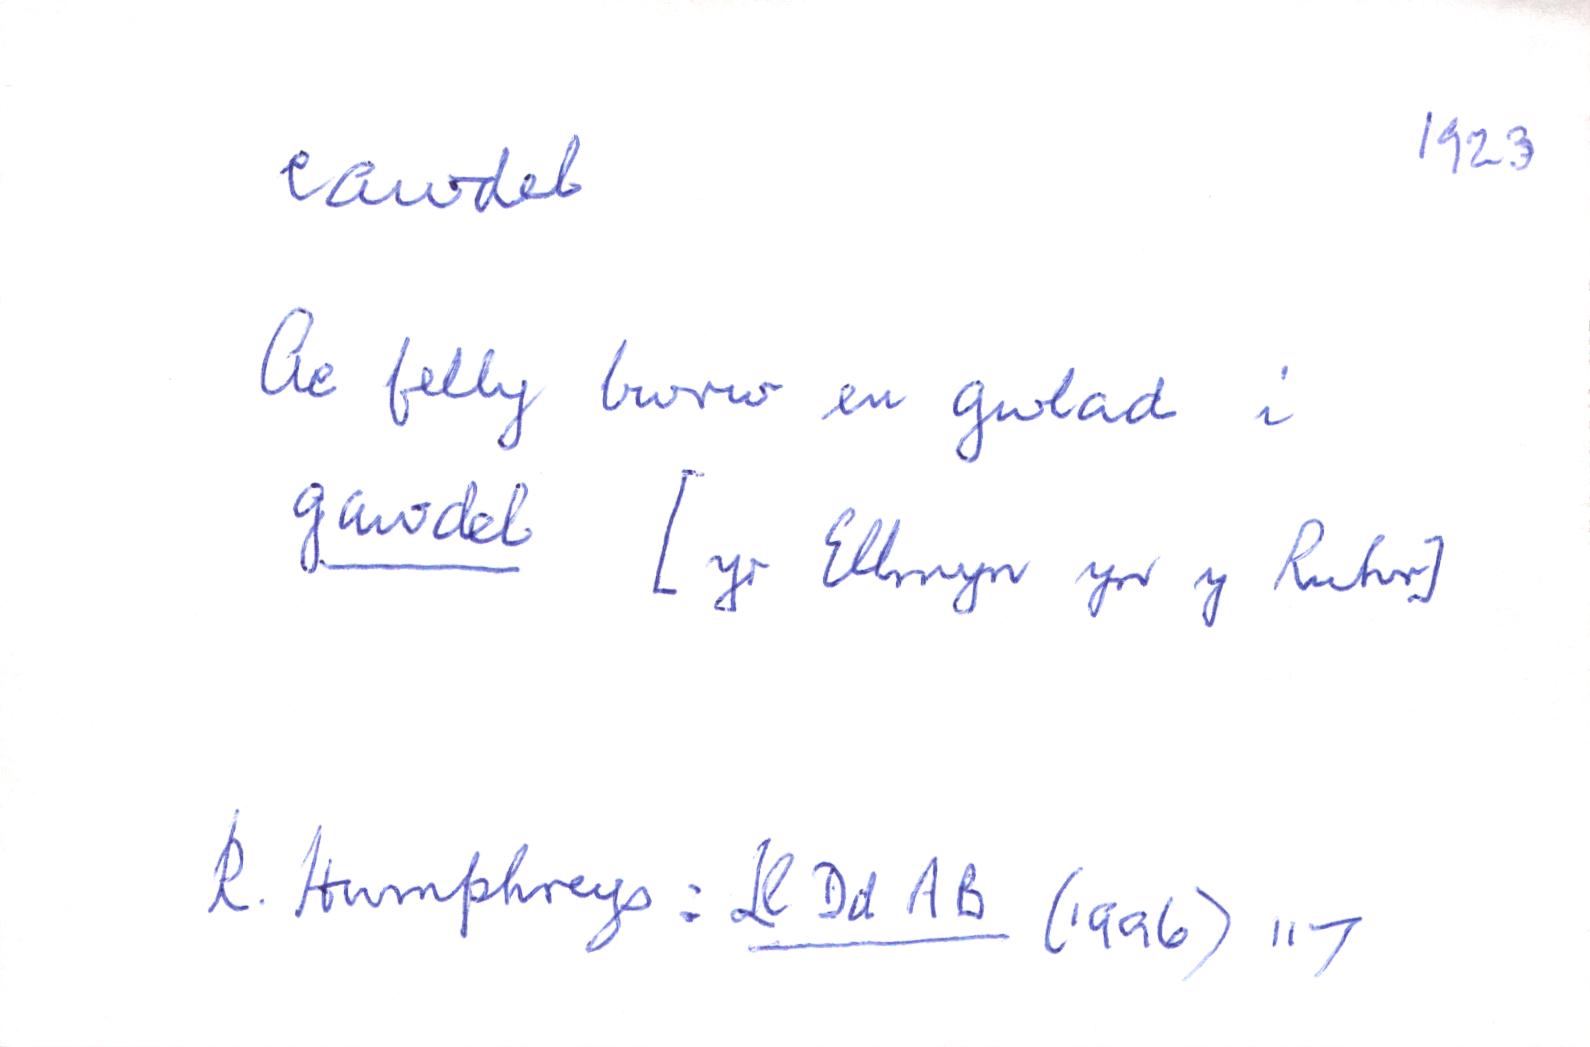 1923
cawdel
Ac felly bwrw eu gwlad i
gawdel [yr Ellmyn yn y Ruhr]
R. Humphreys: Ll Dd A B (1996) 117